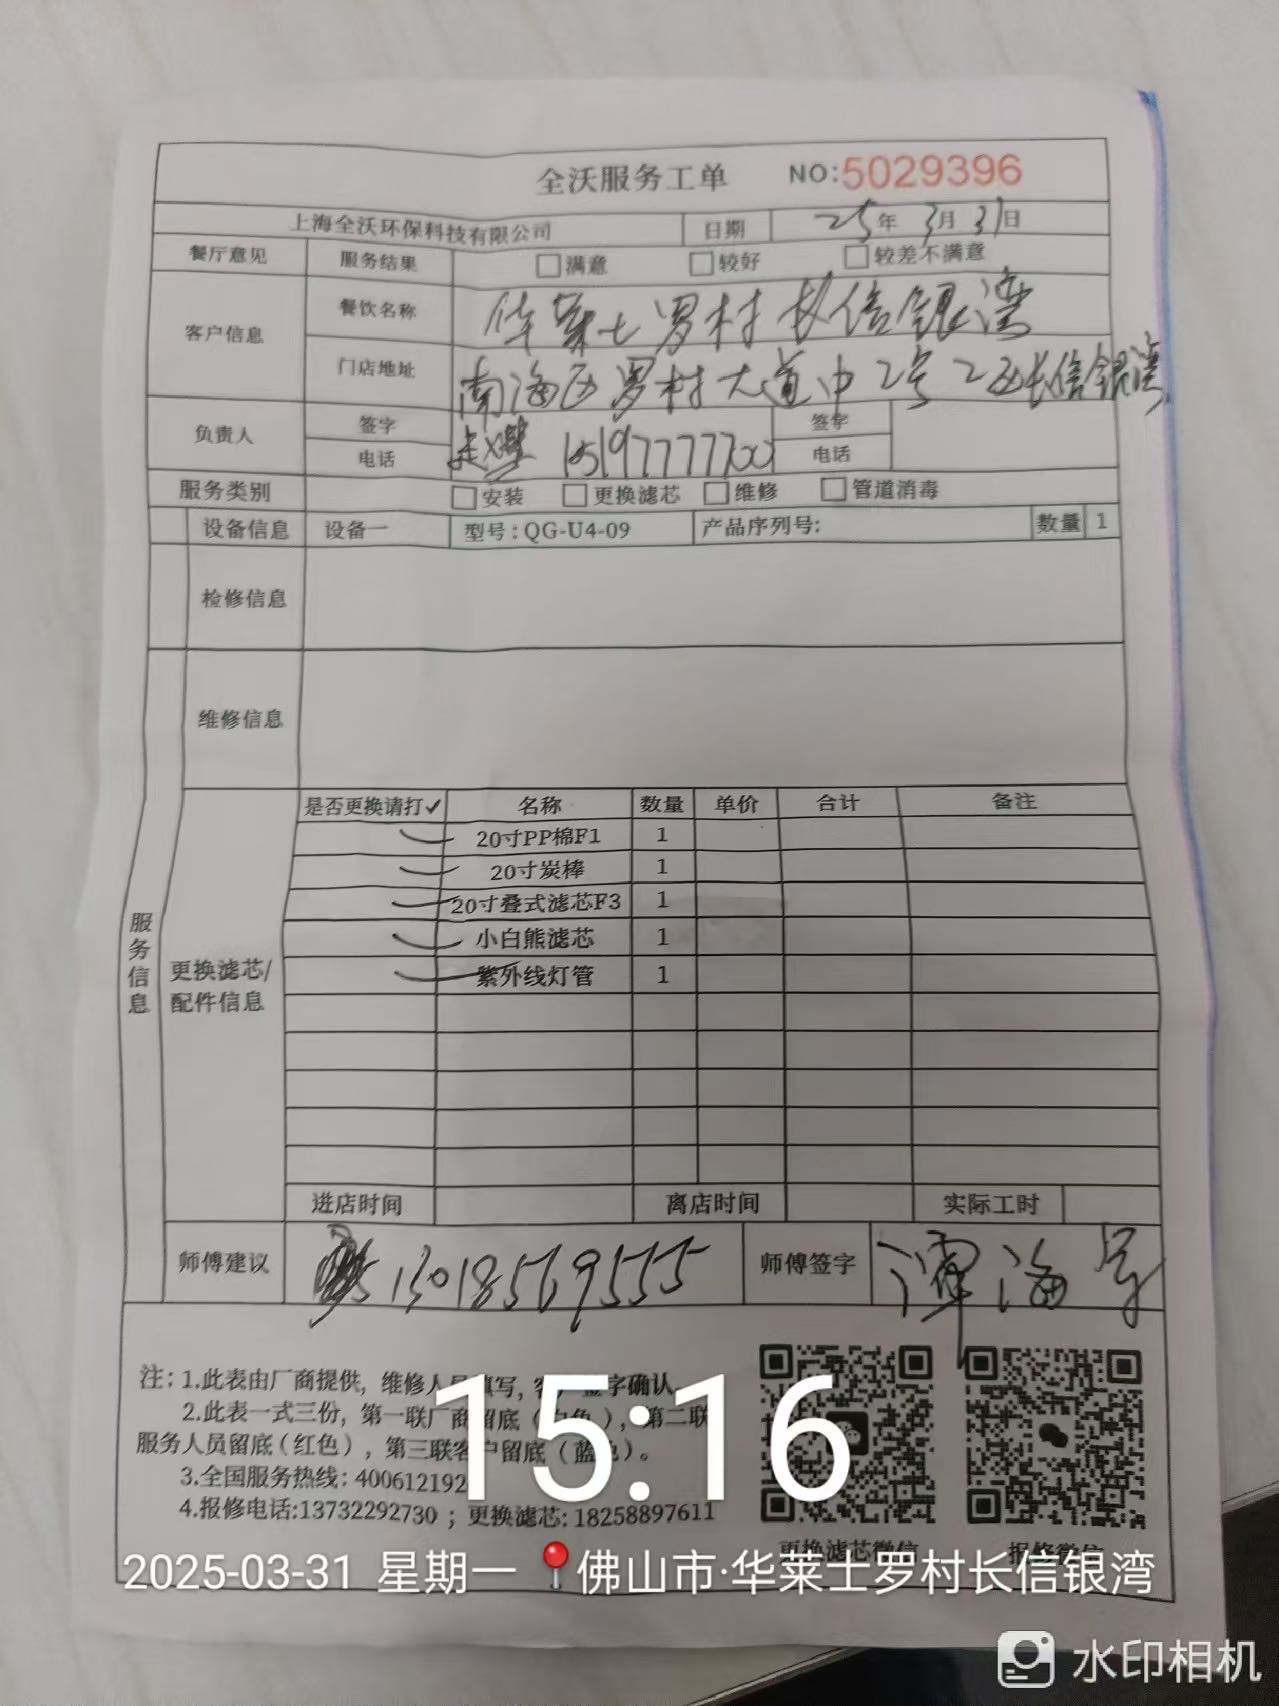 全沃服务工单 NO:5029396
上海全沃环保科技有限公司 日期 25年3月31日
餐厅意见 服务结果 □满意 □较好 □较差不满意
客户信息 餐饮名称 华莱士罗村长信银湾
门店地址 南海区罗村大道中2号2区长信银湾
负责人 签字 签字
电话 15197777700 电话
服务类别 □安装 □更换滤芯 □维修 □管道消毒
设备信息 设备一 型号:QG-U4-09 产品序列号: 数量 1
检修信息
维修信息
服务信息
更换滤芯/
配件信息
是否更换请打✓ 名称 数量 单价 合计 备注
✓ 20寸PP棉F1 1
✓ 20寸炭棒 1
✓ 20寸叠式滤芯F3 1
✓ 小白熊滤芯 1
✓ 紫外线灯管 1
进店时间 离店时间 实际工时
师傅建议 13018569555 师傅签字 谭海
注: 1.此表由厂商提供, 维修人员填写, 签字确认
2.此表一式三份, 第一联厂商留底(白色), 第二联
服务人员留底(红色), 第三联客户留底(蓝色)。
3.全国服务热线: 400612192
4.报修电话:13732292730 ; 更换滤芯: 18258897611
更换滤芯微信 报修微信
15:16
2025-03-31 星期一 佛山市·华莱士罗村长信银湾
水印相机